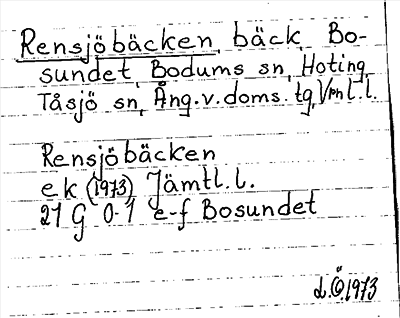 Rensjöbäcken, bäck, Bo-
sundet, Bodums sn, Hoting
Tåsjö sn, Ång.v.doms.tg, Vnl.l.
Rensjöbäcken
ek (1973) Jämtl.l.
21 G 0-1 e-f Bosundet
L.Ö.1973